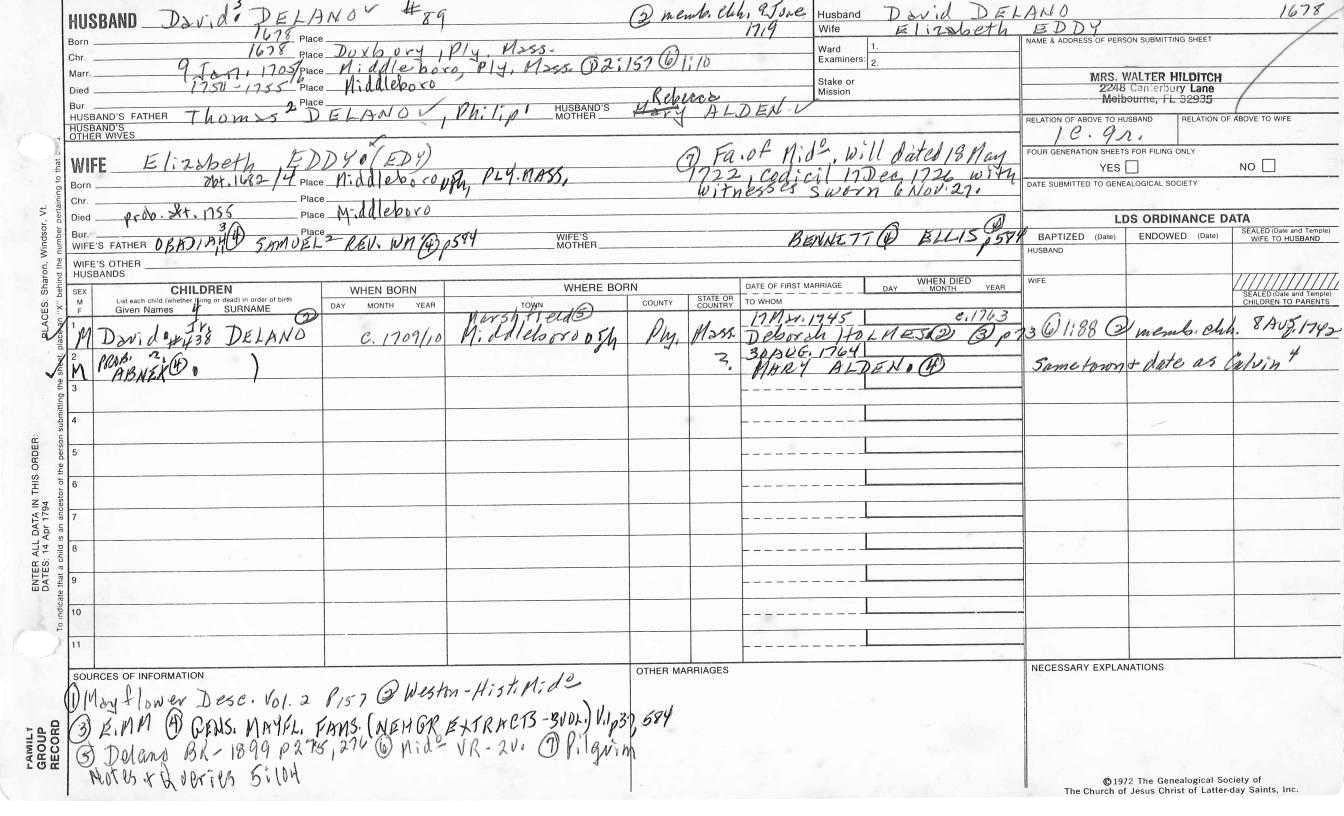 HUSBAND David³ DELANO ✓ #89 ② memb. chh. 9 June 1719
Born 1678 Place
Chr. 1678 Place Duxbory, Ply, Mass.
Marr. 9 Jan. 1705/6 Place Middleboro, Ply, Mass. ① 2:157 ⑥ 1:10
Died 1750-1755 Place Middleboro
Bur. Place
HUSBAND'S FATHER Thomas² DELANO ✓, Philip¹ HUSBAND'S MOTHER Mary Rebecca ALDEN ✓
HUSBAND'S OTHER WIVES
Husband David DELANO 1678
Wife Elizabeth EDDY
Ward Examiners: 1.
2.
Stake or Mission
NAME & ADDRESS OF PERSON SUBMITTING SHEET
MRS. WALTER HILDITCH
2248 Canterbury Lane
Melbourne, FL 32935
RELATION OF ABOVE TO HUSBAND RELATION OF ABOVE TO WIFE
1c. 9r.
FOUR GENERATION SHEETS FOR FILING ONLY
YES NO
DATE SUBMITTED TO GENEALOGICAL SOCIETY
WIFE Elizabeth EDDY (EDY)
⑦ Fa. of Mid⁰, will dated 18 May
1722, codicil 17 Dec, 1726 with
witnesses sworn 6 Nov. 27.
Born abt. 1682/4 Place Middleborough, PLY. MASS,
Chr. Place
Died prob. aft. 1755 Place Middleboro
Bur. Place
WIFE'S FATHER OBADIAH³ ④ SAMUEL² REV. WM¹ ④ p584 WIFE'S MOTHER BENNETT ④ ELLIS ④ p584
WIFE'S OTHER HUSBANDS
LDS ORDINANCE DATA
BAPTIZED (Date) ENDOWED (Date) SEALED (Date and Temple) WIFE TO HUSBAND
HUSBAND
WIFE
SEALED (Date and Temple) CHILDREN TO PARENTS
SEX M F CHILDREN WHEN BORN WHERE BORN DATE OF FIRST MARRIAGE WHEN DIED
List each child (whether living or dead) in order of birth
Given Names SURNAME DAY MONTH YEAR TOWN COUNTY STATE OR COUNTRY TO WHOM DAY MONTH YEAR
1 M David⁴ Jr. #438 DELANO ② c. 1709/10 Marshfield ⑤ Middleborough Ply, Mass. 17 Mar. 1745 c. 1763
Deborah HOLMES ② ③ p73 ⑥ 1:88 ② memb. chh. 8 AUG. 1742
2 M PROB. ABNER ④ ) ?. 30 AUG. 1764
MARY ALDEN. ④ Same town + date as Calvin⁴
3
4
5
6
7
8
9
10
11
SOURCES OF INFORMATION
① Mayflower Desc. Vol. 2 P157 ② Weston-Hist. Mid⁰
③ E.MM ④ GENS. MAYFL. FAMS. (NEHGR EXTRACTS-3VOL.) V.1p37, 584
⑤ Delano BK- 1899 p275, 276 ⑥ Mid⁰ VR-2V. ⑦ Pilgrim
Notes & Queries 5:104
OTHER MARRIAGES
NECESSARY EXPLANATIONS
©1972 The Genealogical Society of
The Church of Jesus Christ of Latter-day Saints, Inc.
FAMILY GROUP RECORD
ENTER ALL DATA IN THIS ORDER:
DATES: 14 Apr 1794
PLACES: Sharon, Windsor, Vt.
To indicate that a child is an ancestor of the person submitting the sheet, place an "X" behind the number pertaining to that